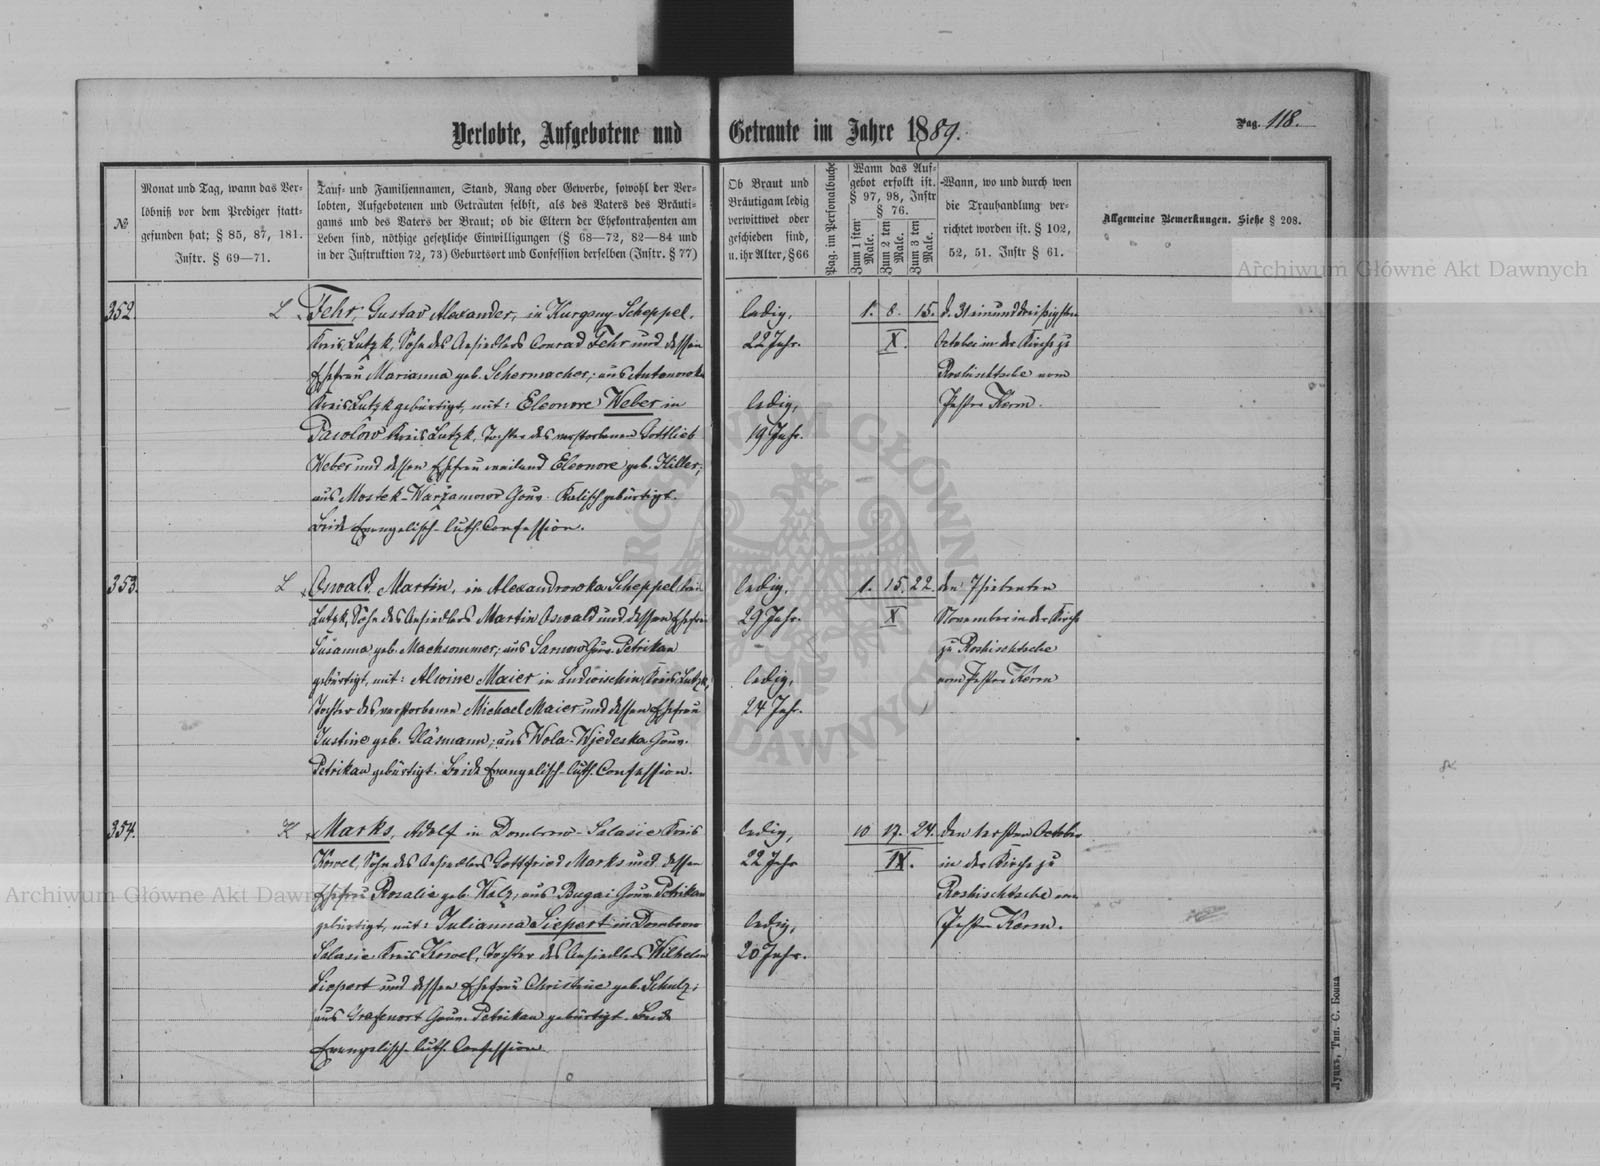 Verlobte, Aufgebotene und Getraute im Jahre 1889. Pag. 118.
№
Monat und Tag, wann das Ver-
löbniß vor dem Prediger statt-
gefunden hat; § 85, 87, 181.
Instr. § 69—71.
Tauf- und Familiennamen, Stand, Rang oder Gewerbe, sowohl der Ver-
lobten, Aufgebotenen und Getrauten selbst, als des Vaters des Bräuti-
gams und des Vaters der Braut; ob die Eltern der Ehekontrahenten am
Leben sind, nöthige gesetzliche Einwilligungen (§ 68—72, 82—84 und
in der Justruktion 72, 73) Geburtsort und Confession derselben (Instr. § 77)
Ob Braut und
Bräutigam ledig
verwittwet oder
geschieden sind,
u. ihr Alter, § 66
Pag. im Personalbuche
Wann das Auf-
gebot erfolkt ist.
§ 97, 98, Instr
§ 76.
Zum 1 sten Male.
Zum 2 ten Male.
Zum 3 ten Male.
Wann, wo und durch wen
die Trauhandlung ver-
richtet worden ist. § 102,
52, 51. Instr § 61.
Allgemeine Bemerkungen. Siehe § 208.
Archiwum Główne Akt Dawnych
352.
L
Fehr, Gustav Alexander, in Kurgany-Scheppel,
Kreis Lutzk, Sohn des Ansiedlers Conrad Fehr und dessen
Ehefrau Marianna geb. Schermacher; aus Antonowka
Kreis Lutzk gebürtigt, mit: Eleonore Weber in
Kreis Lutzk, Tochter des verstorbenen Gottlieb
Weber und dessen Ehefrau weiland Eleonore geb. Hiller;
aus Mostek-Warzamowo Gouv. Kalisch gebürtigt.
Beide Evangelisch-luth. Confession.
ledig,
22 Jahr.
ledig,
19 Jahr.
1. 8. 15.
X.
d. 31 einunddreißigsten
October in der Kirche zu
Roshischtsche vom
Pastor Kerm.
353.
L
Oswald, Martin, in Alexandrowka Scheppel, Kreis
Lutzk, Sohn des Ansiedlers Martin Oswald und dessen Ehefrau
Susanna geb. Machsommer; aus Sarnow Gouv. Petrikau
gebürtigt, mit: Alwine Maier in Ludwischin Kreis Lutzk,
Tochter des verstorbenen Michael Maier und dessen Ehefrau
Justine geb. Gläsmann; aus Wola-Wjedeska Gouv.
Petrikau gebürtigt. Beide Evangelisch-luth. Confession.
ledig,
29 Jahr.
ledig,
24 Jahr.
1. 15. 22.
X
den 7 siebenten
November in der Kirche
zu Roshischtsche
vom Pastor Kerm
354.
K
Marks, Adolf in Dombrowo-Salasie Kreis
Kowel, Sohn des Ansiedlers Gottfried Marks und dessen
Ehefrau Rosalie geb. Walz; aus Bugai Gouv. Petrikau
gebürtigt, mit: Julianna Siepert in Dombrowo
Salasie Kreis Kowel, Tochter des Ansiedlers Wilhelm
Siepert und dessen Ehefrau Christine geb. Schulz;
aus Grafenort Gouv. Petrikau gebürtigt. Beide
Evangelisch-luth. Confession.
ledig,
22 Jahr
ledig,
20 Jahr.
10 17. 24.
IX.
den 1 ersten October
in der Kirche zu
Roshischtsche vom
Pastor Kerm.
Archiwum Główne Akt Dawnych
ARCHIWUM GŁÓWNE AKT DAWNYCH
Луцкъ, Тип. С. Бонка